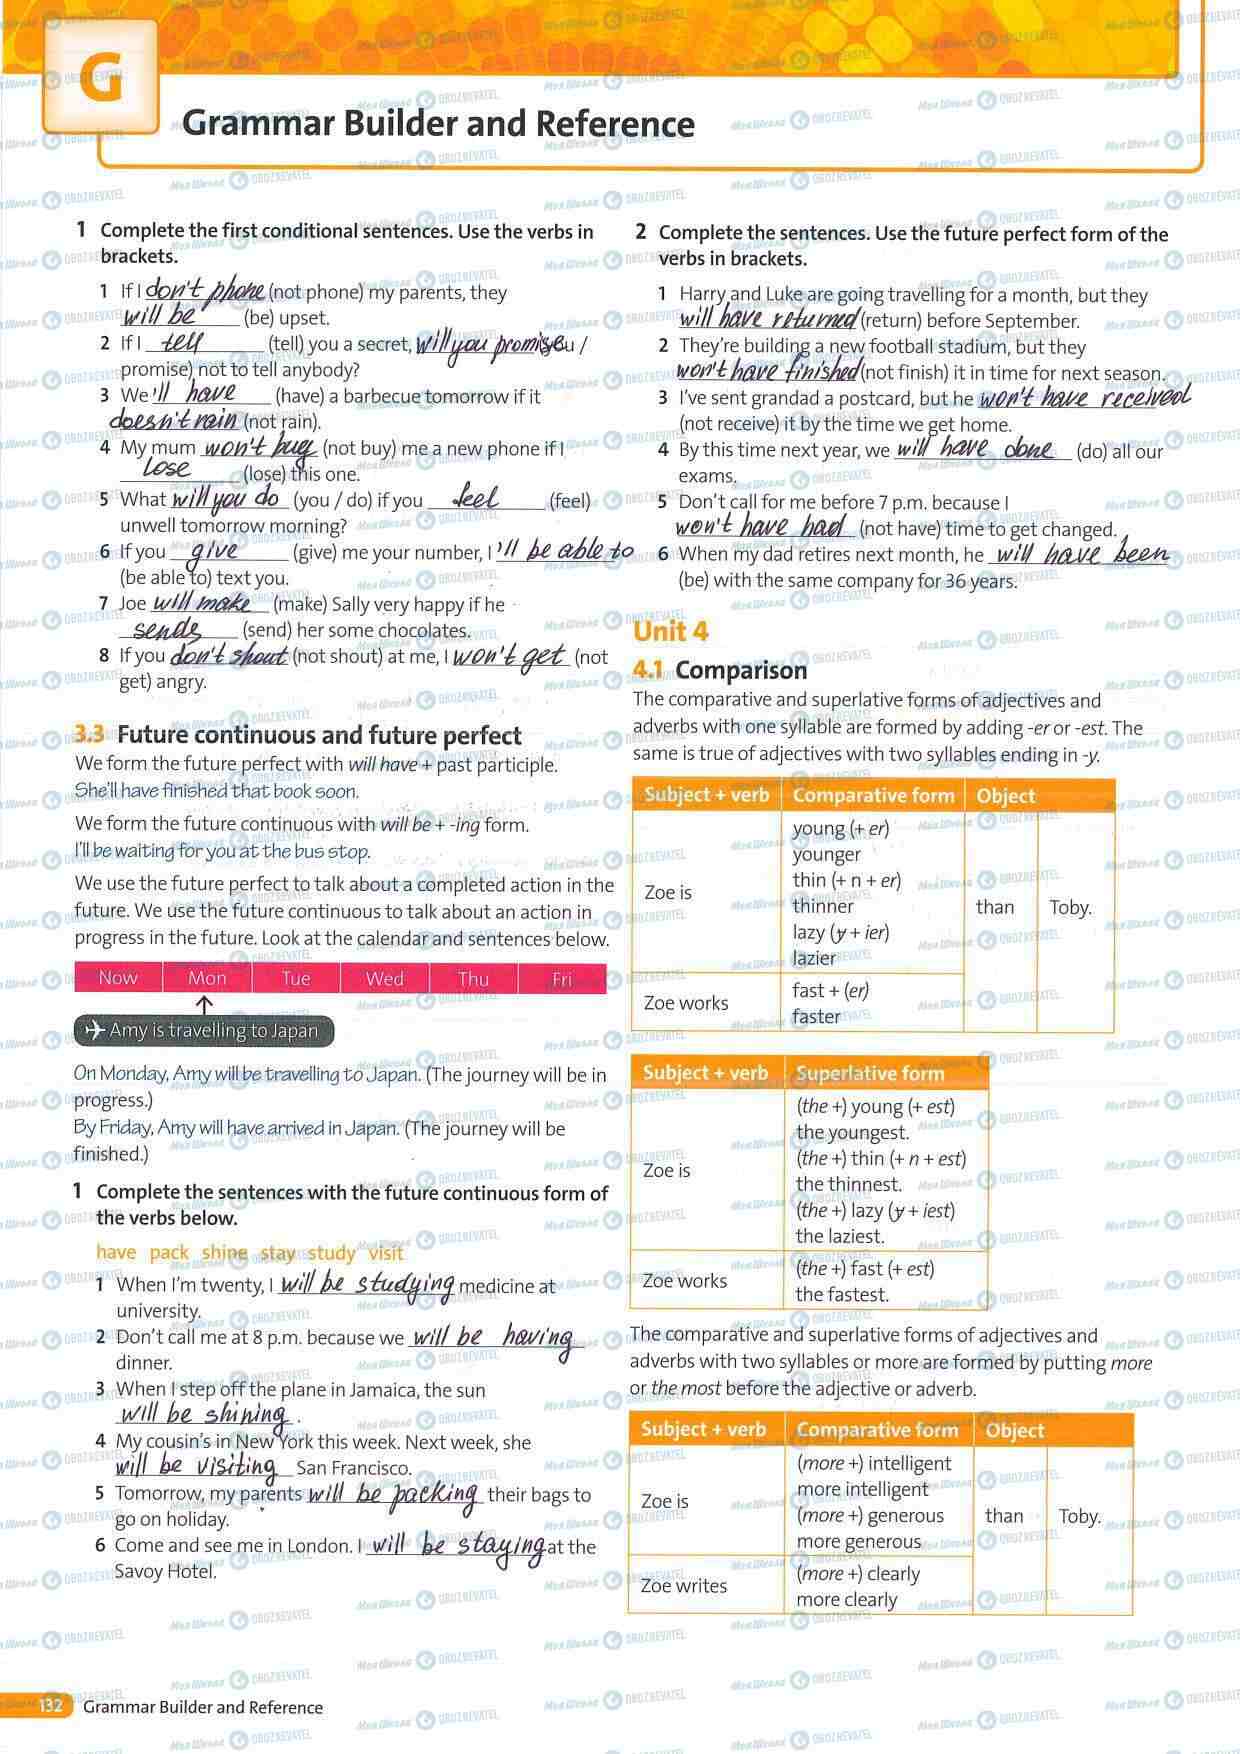 G
Grammar Builder and Reference
1 Complete the first conditional sentences. Use the verbs in
brackets.
1 If I don't phone (not phone) my parents, they
will be (be) upset.
2 If I tell (tell) you a secret, will you promise (you /
promise) not to tell anybody?
3 We 'll have (have) a barbecue tomorrow if it
doesn't rain (not rain).
4 My mum won't buy (not buy) me a new phone if I
lose (lose) this one.
5 What will you do (you / do) if you feel (feel)
unwell tomorrow morning?
6 If you give (give) me your number, I 'll be able to
(be able to) text you.
7 Joe will make (make) Sally very happy if he
sends (send) her some chocolates.
8 If you don't shout (not shout) at me, I won't get (not
get) angry.
3.3 Future continuous and future perfect
We form the future perfect with will have + past participle.
She'll have finished that book soon.
We form the future continuous with will be + -ing form.
I'll be waiting for you at the bus stop.
We use the future perfect to talk about a completed action in the
future. We use the future continuous to talk about an action in
progress in the future. Look at the calendar and sentences below.
Now Mon Tue Wed Thu Fri
Amy is travelling to Japan
On Monday, Amy will be travelling to Japan. (The journey will be in
progress.)
By Friday, Amy will have arrived in Japan. (The journey will be
finished.)
1 Complete the sentences with the future continuous form of
the verbs below.
have pack shine stay study visit
1 When I'm twenty, I will be studying medicine at
university.
2 Don't call me at 8 p.m. because we will be having
dinner.
3 When I step off the plane in Jamaica, the sun
will be shining.
4 My cousin's in New York this week. Next week, she
will be visiting San Francisco.
5 Tomorrow, my parents will be packing their bags to
go on holiday.
6 Come and see me in London. I will be staying at the
Savoy Hotel.
2 Complete the sentences. Use the future perfect form of the
verbs in brackets.
1 Harry and Luke are going travelling for a month, but they
will have returned (return) before September.
2 They're building a new football stadium, but they
won't have finished (not finish) it in time for next season.
3 I've sent grandad a postcard, but he won't have received
(not receive) it by the time we get home.
4 By this time next year, we will have done (do) all our
exams.
5 Don't call for me before 7 p.m. because I
won't have had (not have) time to get changed.
6 When my dad retires next month, he will have been
(be) with the same company for 36 years.
Unit 4
4.1 Comparison
The comparative and superlative forms of adjectives and
adverbs with one syllable are formed by adding -er or -est. The
same is true of adjectives with two syllables ending in -y.
Subject + verb Comparative form Object
young (+ er)
younger
thin (+ n + er)
Zoe is
thinner
than Toby.
lazy (y + ier)
lazier
fast + (er)
Zoe works
faster
Subject + verb Superlative form
(the +) young (+ est)
the youngest.
(the +) thin (+ n + est)
Zoe is
the thinnest.
(the +) lazy (y + iest)
the laziest.
(the +) fast (+ est)
Zoe works
the fastest.
The comparative and superlative forms of adjectives and
adverbs with two syllables or more are formed by putting more
or the most before the adjective or adverb.
Subject + verb Comparative form Object
(more +) intelligent
more intelligent
Zoe is
(more +) generous than Toby.
more generous
(more +) clearly
Zoe writes
more clearly
132 Grammar Builder and Reference